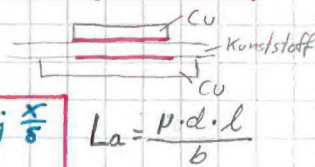 Cu
Kunststoff
Cu
j x/δ
La = μ·d·l / b